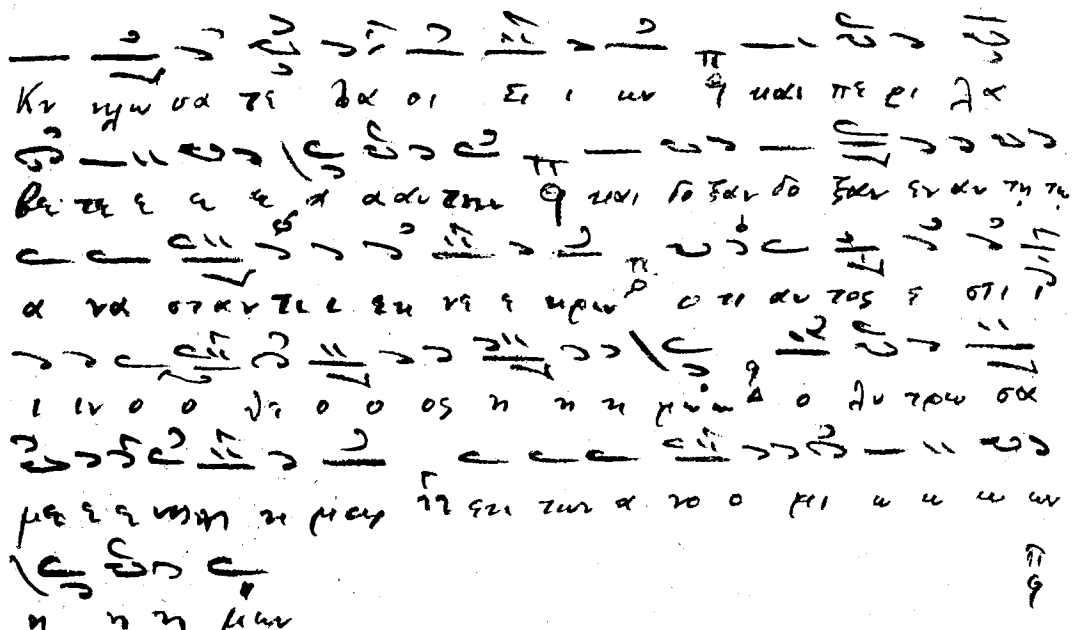 Κυ κλω σα τε λα οι Σι ι ων και πε ρι λα
βε τε ε ε ε α α αυ την και δο ξαν δο ξαν εν αυ τη τω
α να σταν τι ι εκ νε ε κρων ο τι αυ τος ε στι ι
ι ιν ο ο Θε ο ο ος η η η μων ο λυ τρω σα
με ε ε νος η μας εκ των α νο ο μι ω ω ω ων
η η η μων